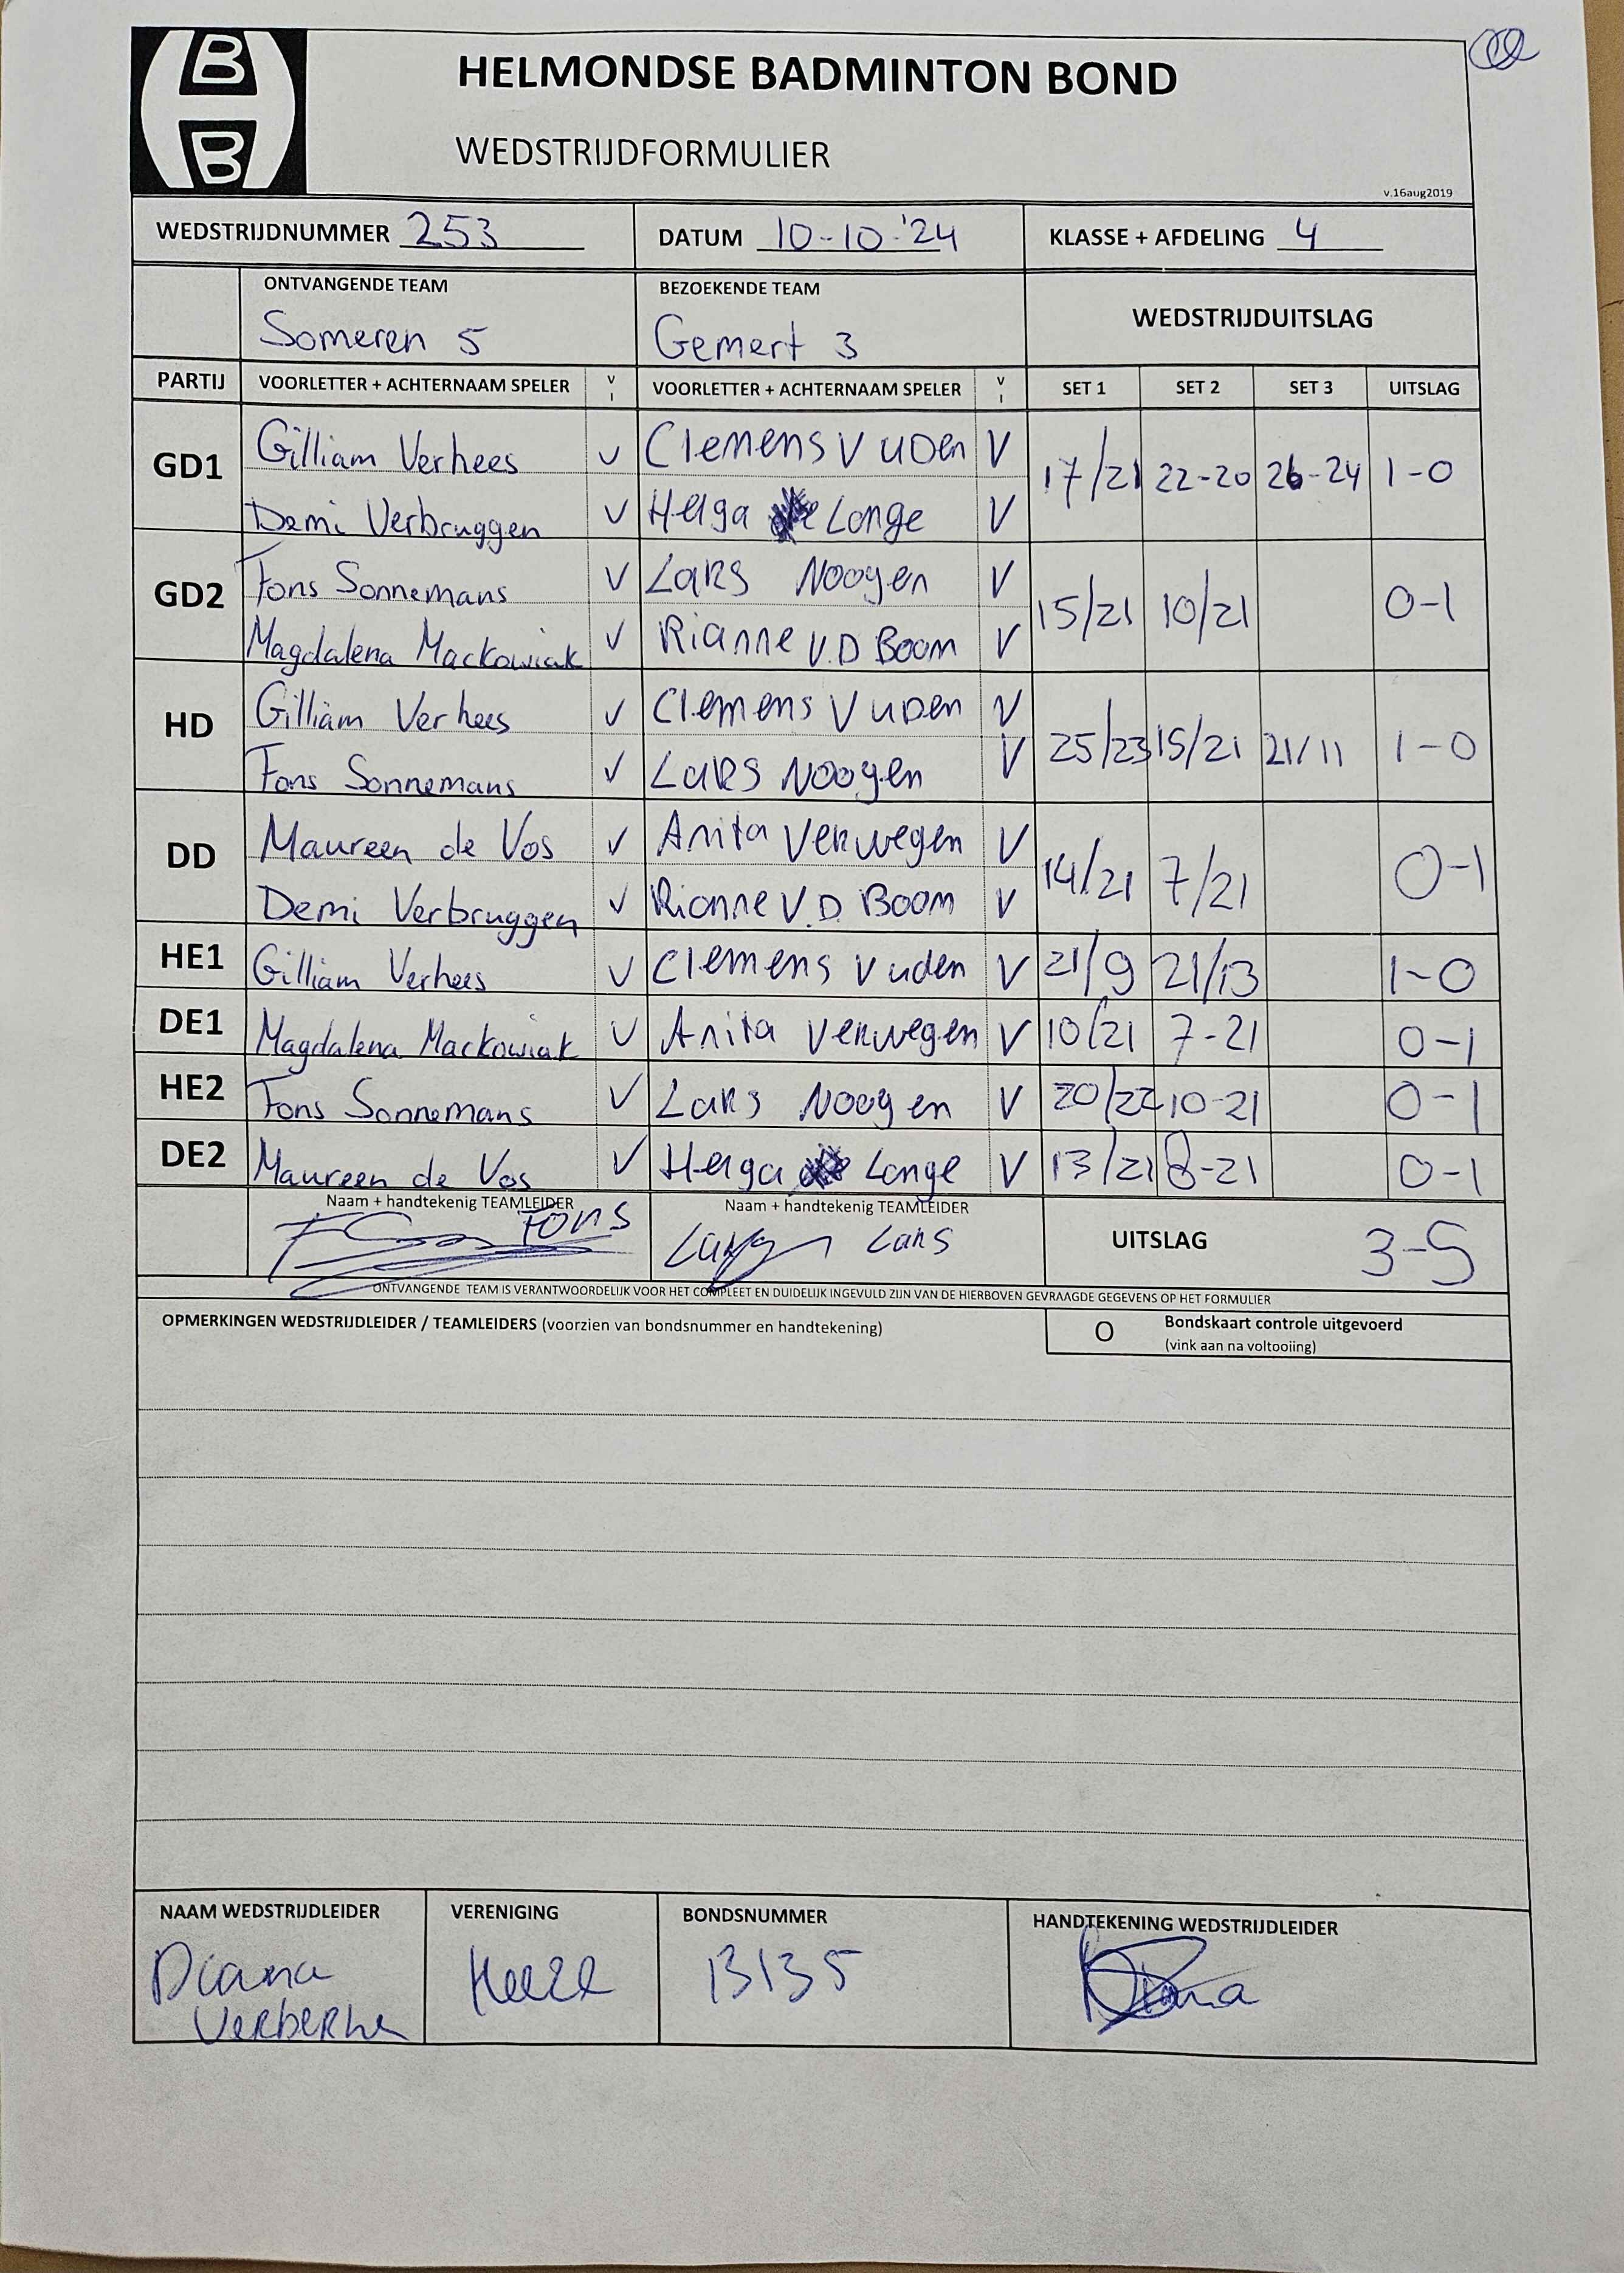 B
B
HELMONDSE BADMINTON BOND
WEDSTRIJDFORMULIER
v.16aug2019
WEDSTRIJDNUMMER 253 DATUM 10-10-'24 KLASSE + AFDELING 4
ONTVANGENDE TEAM BEZOEKENDE TEAM
WEDSTRIJDUITSLAG
Someren 5 Gemert 3
PARTIJ VOORLETTER + ACHTERNAAM SPELER V I VOORLETTER + ACHTERNAAM SPELER V I SET 1 SET 2 SET 3 UITSLAG
GD1 Gilliam Verhees V Clemens V UDen V 17/21 22-20 26-24 1-0
Demi Verbruggen V Helga Longe V
GD2 Fons Sonnemans V Lars Nooyen V 15/21 10/21 0-1
Magdalena Mackowiak V Rianne V.D Boom V
HD Gilliam Verhees V Clemens V UDen V 25/23 15/21 21/11 1-0
Fons Sonnemans V Lars Nooyen V
DD Maureen de Vos V Anita Verwegen V 14/21 7/21 0-1
Demi Verbruggen V Rianne V.D. Boom V
HE1 Gilliam Verhees V Clemens V uden V 21/9 21/13 1-0
DE1 Magdalena Mackowiak V Anita Verwegen V 10/21 7-21 0-1
HE2 Fons Sonnemans V Lars Nooyen V 20/22 10-21 0-1
DE2 Maureen de Vos V Helga Longe V 13/21 8-21 0-1
Naam + handtekenig TEAMLEIDER Naam + handtekenig TEAMLEIDER
Fons Lars UITSLAG 3-5
ONTVANGENDE TEAM IS VERANTWOORDELIJK VOOR HET COMPLEET EN DUIDELIJK INGEVULD ZIJN VAN DE HIERBOVEN GEVRAAGDE GEGEVENS OP HET FORMULIER
OPMERKINGEN WEDSTRIJDLEIDER / TEAMLEIDERS (voorzien van bondsnummer en handtekening)
O Bondskaart controle uitgevoerd
(vink aan na voltooiing)
NAAM WEDSTRIJDLEIDER VERENIGING BONDSNUMMER HANDTEKENING WEDSTRIJDLEIDER
Diana Heeze 13135